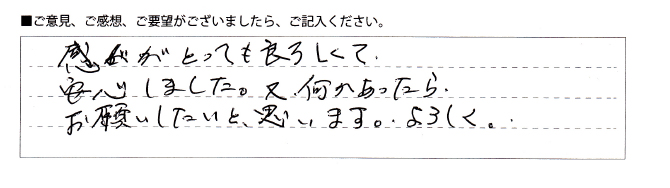 ■ご意見、ご感想、ご要望がございましたら、ご記入ください。
感じがとっても良ろしくて、
安心しました。又、何かあったら、
お願いしたいと、思います。よろしく。